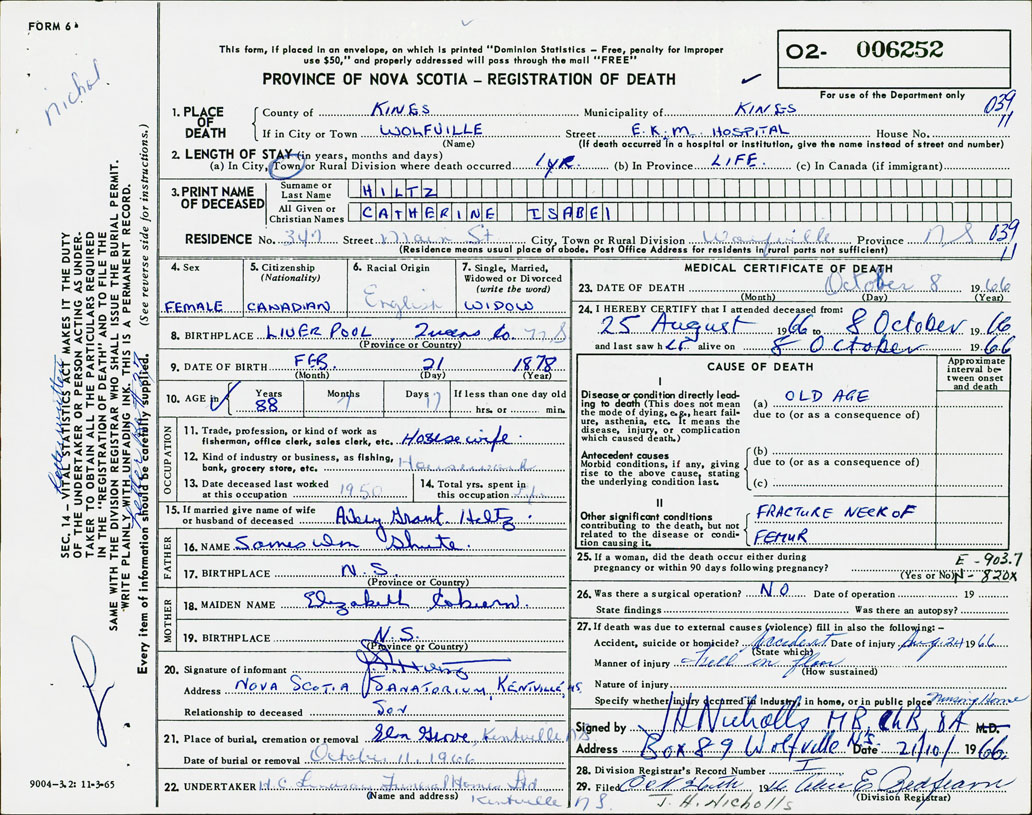 FORM 6
This form, if placed in an envelope, on which is printed "Dominion Statistics – Free, penalty for improper
use $50," and properly addressed will pass through the mail "FREE"
O2- 006252
PROVINCE OF NOVA SCOTIA – REGISTRATION OF DEATH
For use of the Department only
039
11
Nichol
1. PLACE OF DEATH
County of KINGS Municipality of KINGS
If in City or Town WOLFVILLE Street E.K.M. HOSPITAL House No.
(Name) (If death occurred in a hospital or institution, give the name instead of street and number)
2. LENGTH OF STAY (in years, months and days)
(a) In City, Town or Rural Division where death occurred 1 yr. (b) In Province LIFE. (c) In Canada (if immigrant)
3. PRINT NAME OF DECEASED
Surname or Last Name HILTZ
All Given or Christian Names CATHERINE ISABEL
RESIDENCE No. 347 Street Main St City, Town or Rural Division Province NS 039
(Residence means usual place of abode. Post Office Address for residents in rural parts not sufficient) 11
4. Sex FEMALE
5. Citizenship (Nationality) CANADIAN
6. Racial Origin English
7. Single, Married, Widowed or Divorced (write the word) WIDOW
8. BIRTHPLACE LIVERPOOL, Queens Co. N S
(Province or Country)
9. DATE OF BIRTH FEB. 21 1878
(Month) (Day) (Year)
10. AGE in Years 88 Months 7 Days 17 If less than one day old hrs. or min.
OCCUPATION
11. Trade, profession, or kind of work as
fisherman, office clerk, sales clerk, etc. Housewife.
12. Kind of industry or business, as fishing,
bank, grocery store, etc. Housework
13. Date deceased last worked
at this occupation 1950
14. Total yrs. spent in
this occupation
15. If married give name of wife
or husband of deceased Grant Hiltz.
FATHER
16. NAME James Wm Shute.
17. BIRTHPLACE N.S.
(Province or Country)
MOTHER
18. MAIDEN NAME Elizabeth
19. BIRTHPLACE N.S.
(Province or Country)
20. Signature of informant
Address NOVA SCOTIA SANATORIUM, KENTVILLE, NS
Relationship to deceased Son
21. Place of burial, cremation or removal Elm Grove, Kentville NS
Date of burial or removal October 11, 1966
22. UNDERTAKER H.C. Lindsay Funeral Homes Ltd
(Name and address) Kentville N S.
MEDICAL CERTIFICATE OF DEATH
23. DATE OF DEATH October 8 1966
(Month) (Day) (Year)
24. I HEREBY CERTIFY that I attended deceased from:
25 August 1966 to 8 October 1966
and last saw her alive on 8 October 1966
CAUSE OF DEATH
Approximate interval between onset and death
I
Disease or condition directly leading to death (This does not mean the mode of dying, e.g., heart failure, asthenia, etc. It means the disease, injury, or complication which caused death.)
(a) OLD AGE
due to (or as a consequence of)
Antecedent causes
Morbid conditions, if any, giving rise to the above cause, stating the underlying condition last.
(b)
due to (or as a consequence of)
(c)
II
Other significant conditions
contributing to the death, but not related to the disease or condition causing it.
FRACTURE NECK OF
FEMUR
25. If a woman, did the death occur either during
pregnancy or within 90 days following pregnancy? (Yes or No)
E-903.7
N-820X
26. Was there a surgical operation? NO Date of operation 19
State findings Was there an autopsy?
27. If death was due to external causes (violence) fill in also the following:–
Accident, suicide or homicide? Accident Date of injury Aug. 24 1966
(State which)
Manner of injury Fell on floor
(How sustained)
Nature of injury
Specify whether injury occurred in industry, in home, or in public place Nursing Home
Signed by JH Nicholls MB. ChB. BA M.D.
Address Box 89 Wolfville N.S. Date 21/10/ 1966.
28. Division Registrar's Record Number
29. Filed Oct 19
(Division Registrar)
J. H. Nicholls
SEC. 14 – VITAL STATISTICS ACT MAKES IT THE DUTY
OF THE UNDERTAKER OR PERSON ACTING AS UNDER-
TAKER TO OBTAIN ALL THE PARTICULARS REQUIRED
IN THE "REGISTRATION OF DEATH" AND TO FILE THE
SAME WITH THE DIVISION REGISTRAR WHO SHALL ISSUE THE BURIAL PERMIT.
WRITE PLAINLY WITH UNFADING INK. THIS IS A PERMANENT RECORD.
Every item of information should be carefully supplied. (See reverse side for instructions.)
9004-3.2: 11-3-65